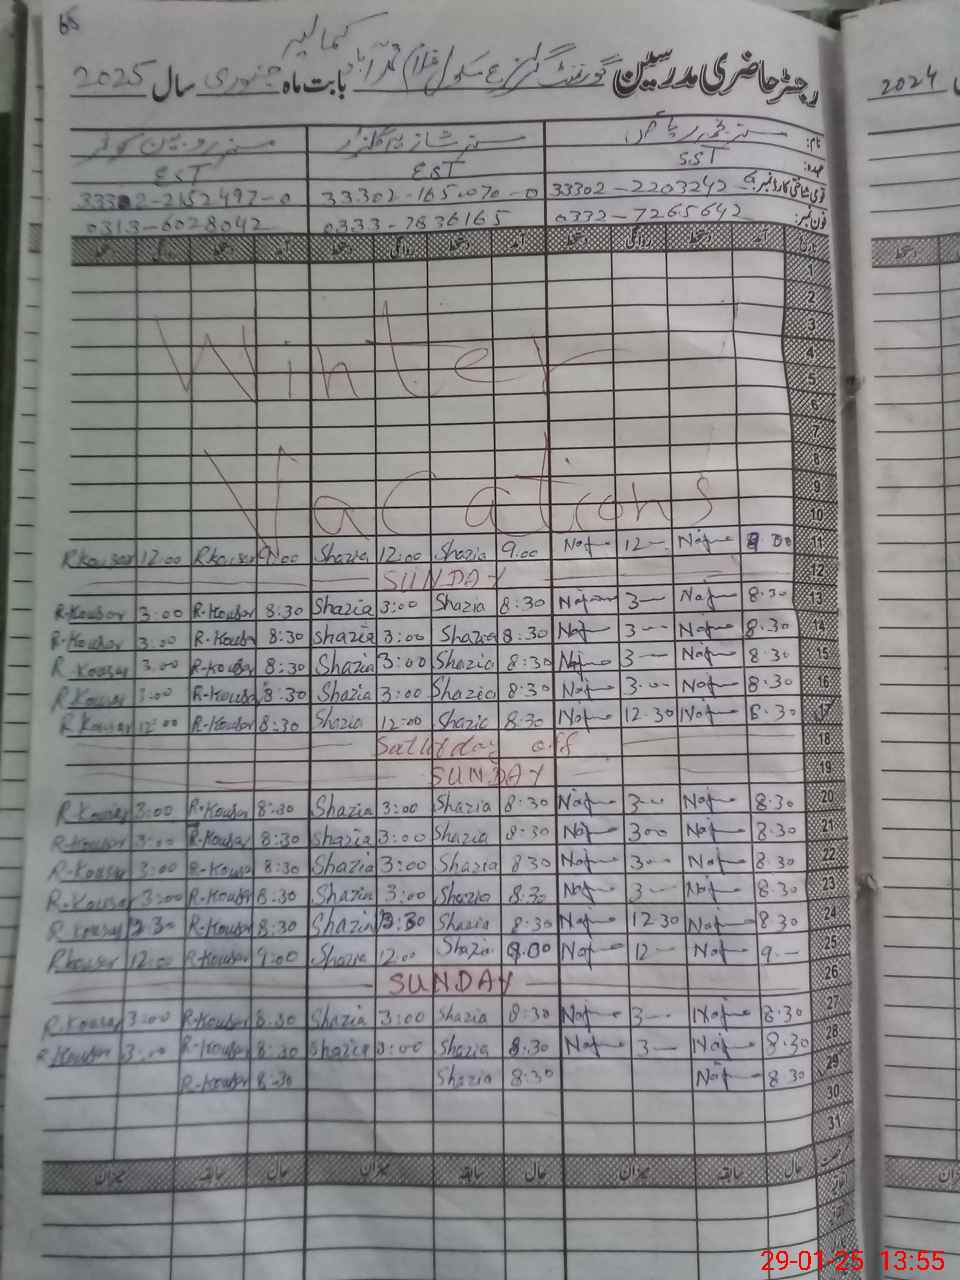 65
کمالیہ
رجسٹر حاضری مدرسین گورنمنٹ گرلز سکول غلام محمد آباد بابت ماہ جنوری سال 2025
2024
نام: مسز مسز شازیہ گلزار مسز روبینہ کوثر
عہدہ: SST EST EST
قومی شناختی کارڈ نمبر: 33302-2203242 33302-165070-0 33302-2152497-0
فون نمبر: 0332-7265642 0333-7836165 0313-6028042
تاریخ آمد دستخط روانگی دستخط آمد دستخط روانگی دستخط آمد دستخط روانگی دستخط
1
2
3
4
Winter
5
6
7
8
9
Vacations
10
R Kousar 12:00 R Kousar 9:00 Shazia 12:00 Shazia 9.00 12 9.00 11
SUNDAY 12
R-Kousar 3:00 R-Kousar 8:30 Shazia 3:00 Shazia 8:30 3 8.30 13
R-Kousar 3:00 R-Kousar 8:30 Shazia 3:00 Shazia 8:30 3 8.30 14
R-Kousar 3:00 R-Kousar 8:30 Shazia 3:00 Shazia 8:30 3 8.30 15
R Kousar 3:00 R-Kousar 8:30 Shazia 3:00 Shazia 8:30 3 8.30 16
R Kousar 12:00 R-Kousar 8:30 Shazia 12:00 Shazia 8:30 12.30 8.30 17
Saturday off 18
SUNDAY 19
R-Kousar 3:00 R-Kousar 8:30 Shazia 3:00 Shazia 8:30 3 8.30 20
R-Kousar 3:00 R-Kousar 8:30 Shazia 3:00 Shazia 8:30 300 8.30 21
R-Kousar 3:00 R-Kousar 8:30 Shazia 3:00 Shazia 8:30 3 8.30 22
R-Kousar 3:00 R-Kousar 8:30 Shazia 3:00 Shazia 8:30 3 8.30 23
R Kousar R-Kousar 8:30 Shazia Shazia 8:30 12.30 8.30 24
R Kousar 12:00 R-Kousar 9:00 Shazia 12:00 Shazia 12 9 25
SUNDAY 26
R-Kousar 3:00 R-Kousar 8:30 Shazia 3:00 Shazia 8:30 3 8.30 27
R Kousar 3:00 R-Kousar 8:30 Shazia 3:00 Shazia 8.30 3 8.30 28
R-Kousar 8:30 Shazia 8:30 8.30 29
30
31
حال سابقہ میزان حال سابقہ میزان حال سابقہ میزان
29-01-25 13:55